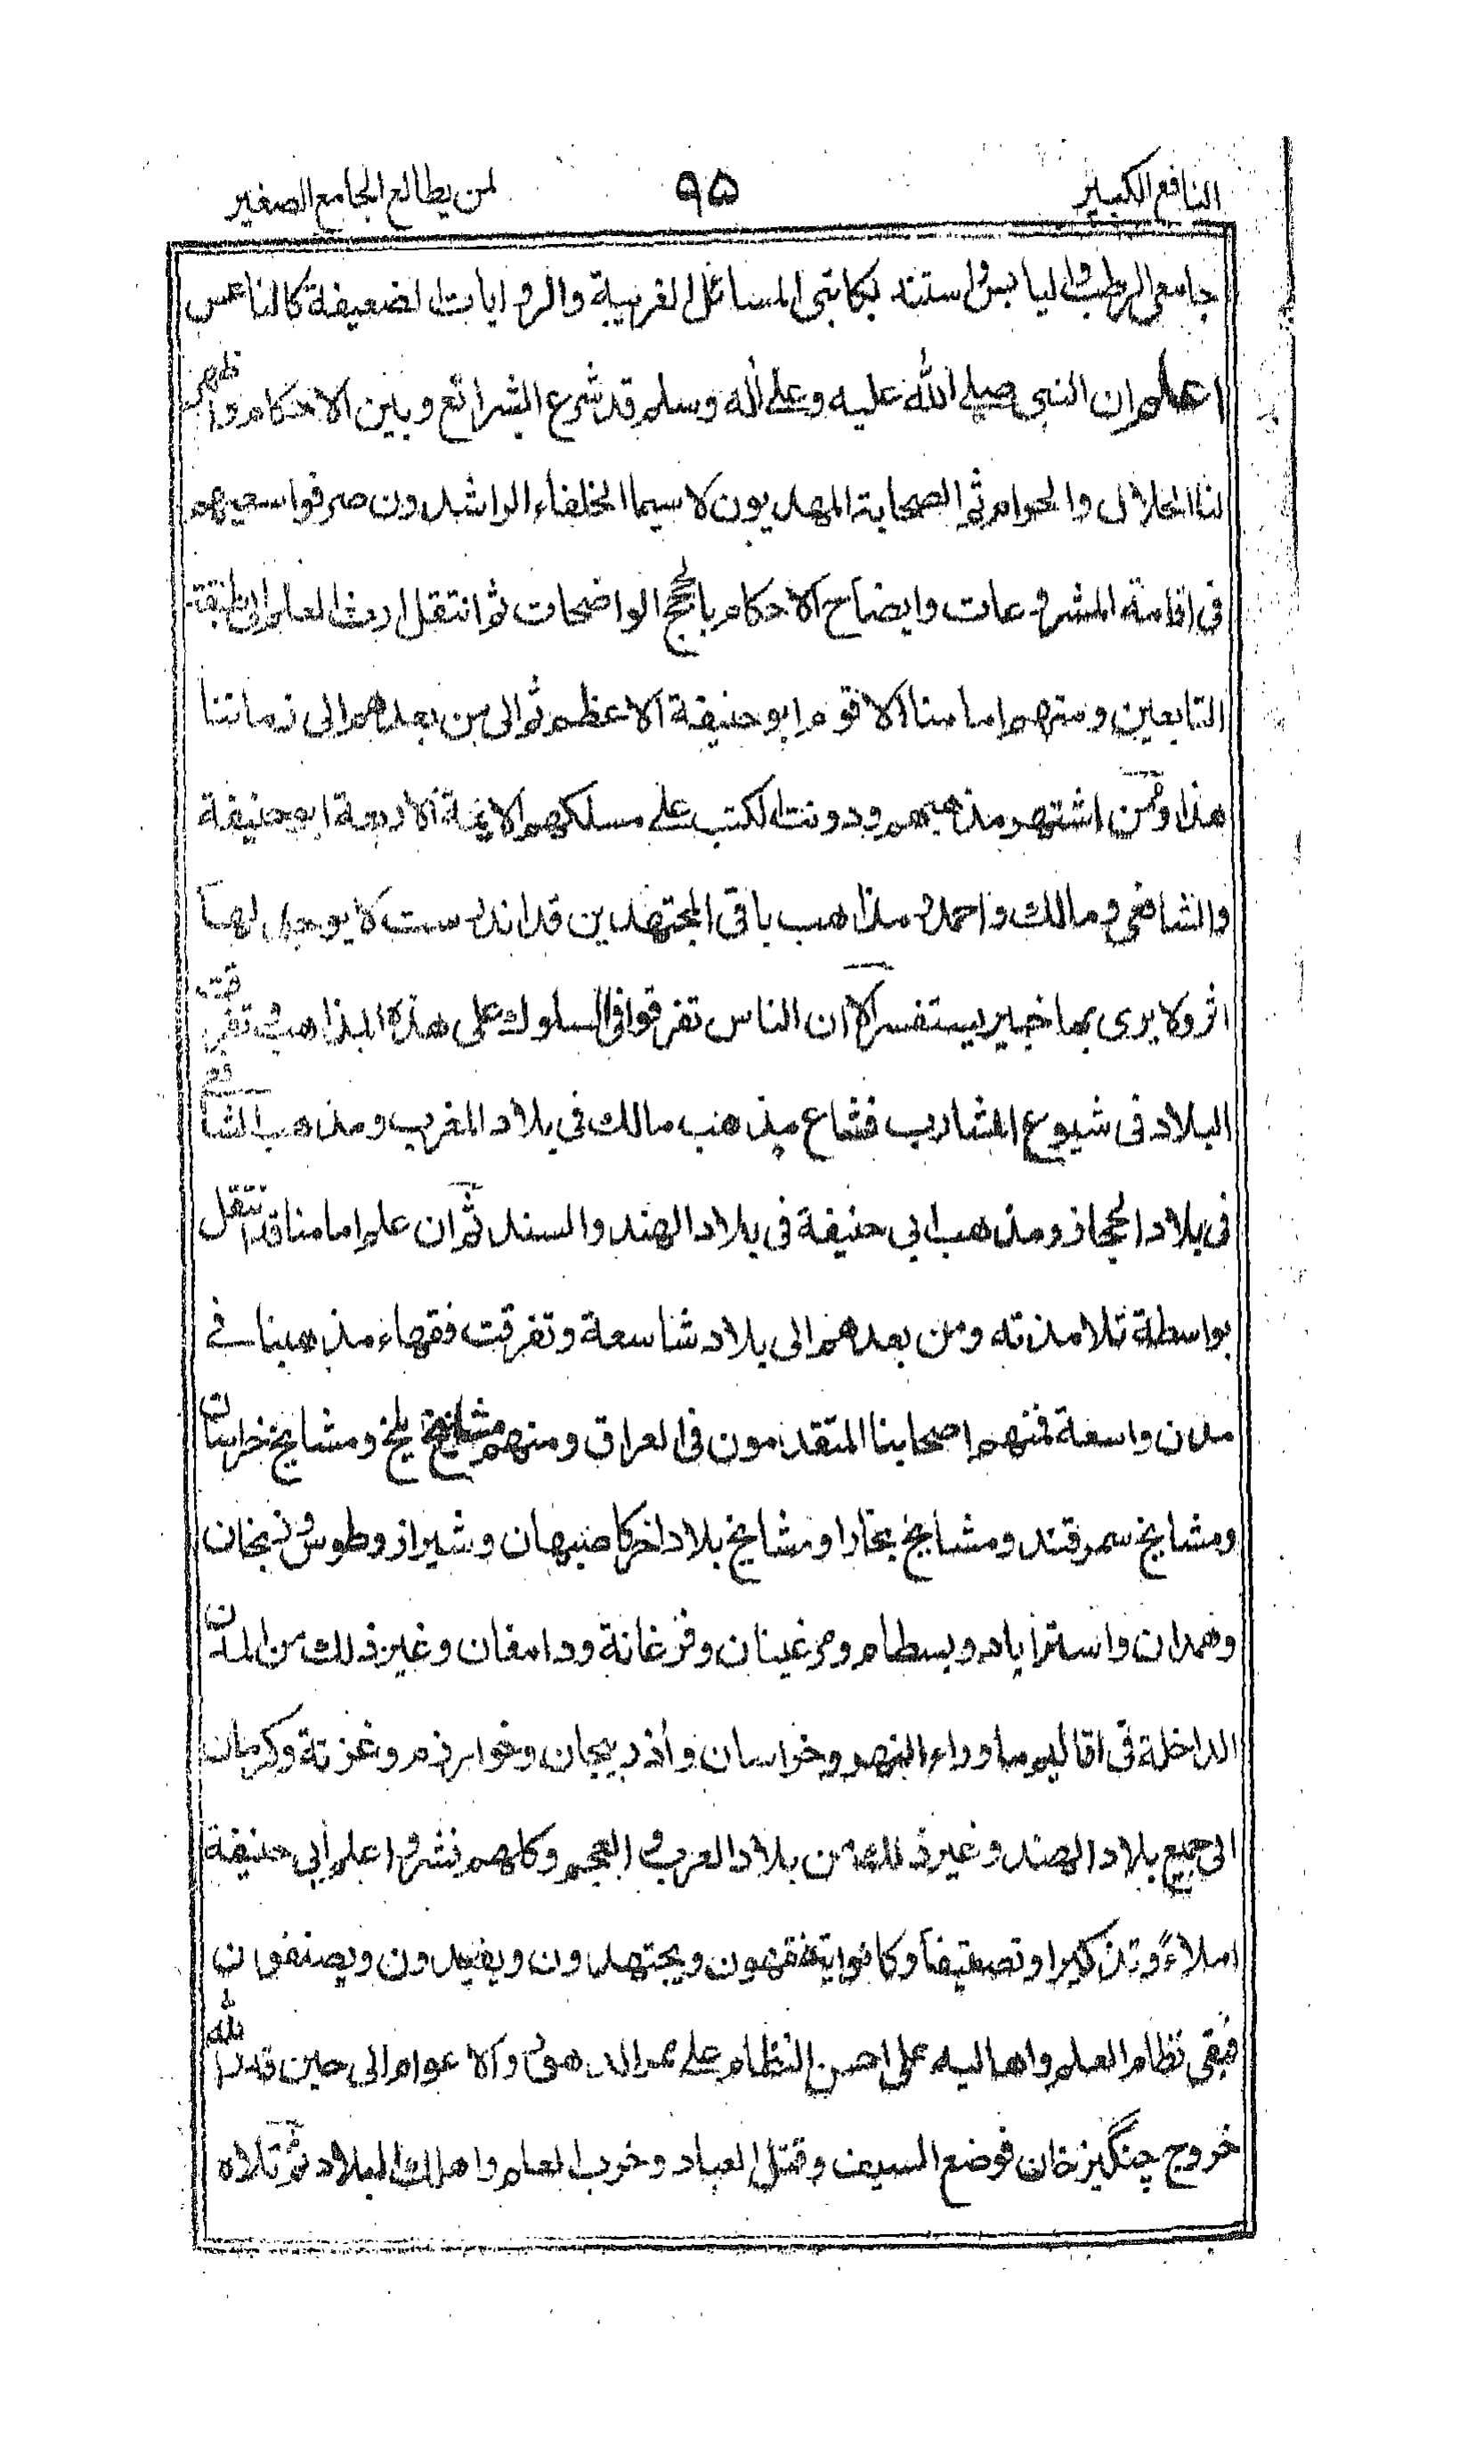 النافع الكبير ٩٥ لمن يطالع الجامع الصغير
جامعي الرطب واليابس واستند بكاتبي المسائل الغريبة والروايات الضعيفة كالناعس
اعلم ان النبي صلى الله عليه وعلى آله وسلم قد شرع الشرائع وبين الاحكام واظهر
لنا الحلال والحرام ثم الصحابة المهديون لاسيما الخلفاء الراشدون صرفوا سعيهم
في اقامة المشروعات وايضاح الاحكام بالحجج الواضحات ثم انتقل ارث العلم الى طبقة
التابعين ومنهم امامنا الاقوم ابو حنيفة الاعظم ثم الى من بعدهم الى زماننا
هذا وممن اشتهر مذهبهم ودونت الكتب على مسلكهم الائمة الاربعة ابو حنيفة
والشافعي ومالك واحمد ومذاهب باقي المجتهدين قد اندرست لا يوجد لها
اثر ولا يرى بها خبير يستفسر الا ان الناس تفرقوا في السلوك على هذه المذاهب وتفرقت
البلاد في شيوع المشارب فشاع مذهب مالك في بلاد المغرب ومذهب الشافعي
في بلاد الحجاز ومذهب ابي حنيفة في بلاد الهند والسند ثم ان علم امامنا قد انتقل
بواسطة تلامذته ومن بعدهم الى بلاد شاسعة وتفرقت فقهاء مذهبنا في
مدن واسعة فمنهم اصحابنا المتقدمون في العراق ومنهم مشايخ بلخ ومشايخ خراسان
ومشايخ سمرقند ومشايخ بخارا ومشايخ بلاد اخر كاصبهان وشيراز وطوس وزنجان
وهمدان واسترآباد وبسطام ومرغينان وفرغانة ودامغان وغير ذلك من المدن
الداخلة في اقاليم ماوراء النهر وخراسان وآذربيجان وخوارزم وغزنة وكرمان
الى جميع بلاد الهند وغير ذلك من بلاد العرب والعجم وكلهم نشروا علم أبي حنيفة
املاءً وتذكيرا وتصنيفا وكانوا يتفقهون ويجتهدون ويفيدون ويصنفون
فبقي نظام العلم واهاليه على احسن النظام على ممر الدهور والاعوام الى حين قدر الله
خروج چنگيزخان فوضع السيف وقتل العباد وخرب العلم واهلك البلاد ثم تلاه